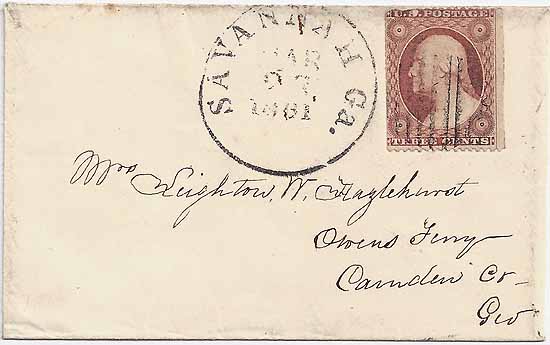 SAVANNAH Ga.
MAR
1861
U.S. POSTAGE
THREE CENTS
Mrs Leighton W. Hazlehurst
Owens Ferry
Camden Co
Geo